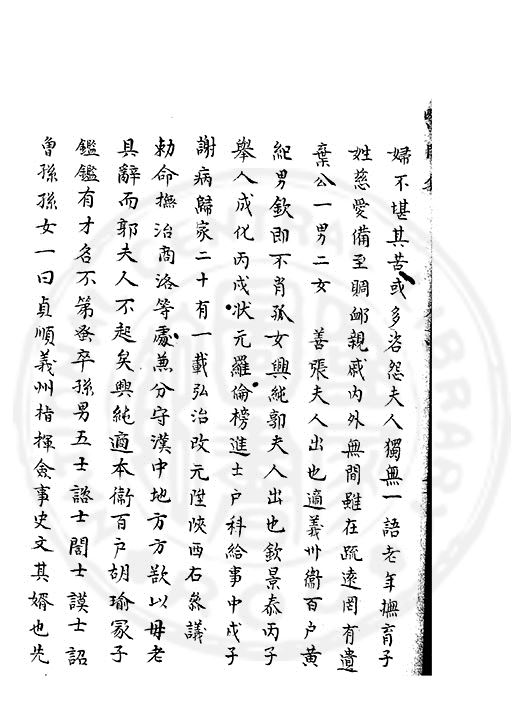 婦不堪其苦或多咨怨夫人獨無一語老年撫育子
姓慈愛備至賙䘏親戚内外無間雖在疏遠罔有遺
棄公一男二女 善張夫人出也適義州衛百户黄
紀男欽即不肖孤女興純郭夫人出也欽景泰丙子
舉人成化丙戌狀元羅倫榜進士户科給事中戊子
謝病歸家二十有一載弘治改元陞陜西右叅議
勅命撫治商洛等處兼分守漢中地方方欲以母老
具辭而郭夫人不起矣興純適本衛百户胡瑜冢子
鑑鑑有才名不第蚤卒孫男五士諮士誾士謨士詔
魯孫孫女一曰貞順義州指揮僉事史文其婿也先